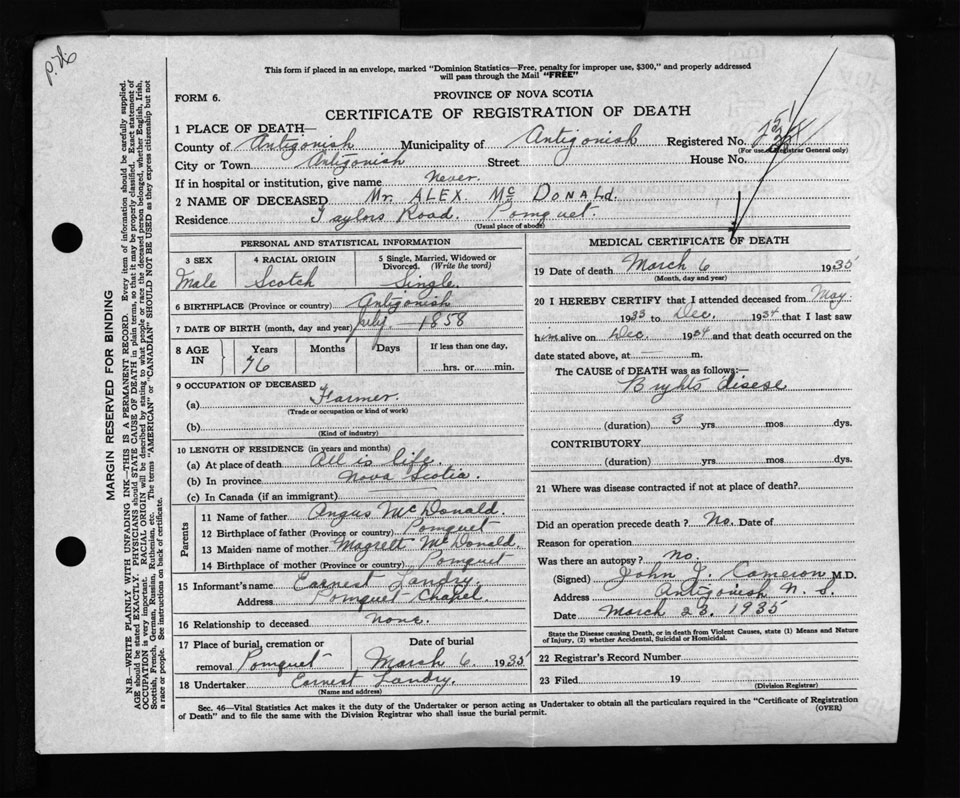 This form if placed in an envelope, marked "Dominion Statistics—Free, penalty for improper use, $300," and properly addressed
will pass through the Mail "FREE"
FORM 6.
PROVINCE OF NOVA SCOTIA
CERTIFICATE OF REGISTRATION OF DEATH
1 PLACE OF DEATH—
County of Antigonish Municipality of Antigonish Registered No.
(For use of Registrar General only)
City or Town Antigonish Street House No.
If in hospital or institution, give name Never.
2 NAME OF DECEASED Mr. ALEX. Mc Donald.
Residence Taylors Road. Pomquet.
(Usual place of abode)
PERSONAL AND STATISTICAL INFORMATION
3 SEX 4 RACIAL ORIGIN 5 Single, Married, Widowed or Divorced. (Write the word)
Male Scotch Single.
6 BIRTHPLACE (Province or country) Antigonish
7 DATE OF BIRTH (month, day and year) July 1858
8 AGE IN Years Months Days If less than one day,
76 hrs. or min.
9 OCCUPATION OF DECEASED
(a) Farmer.
(Trade or occupation or kind of work)
(b)
(Kind of industry)
10 LENGTH OF RESIDENCE (in years and months)
(a) At place of death All is life.
(b) In province Nova Scotia.
(c) In Canada (if an immigrant)
Parents
11 Name of father Angus McDonald.
12 Birthplace of father (Province or country) Pomquet
13 Maiden name of mother Magrett McDonald.
14 Birthplace of mother (Province or country) Pomquet
15 Informant's name Earnest Landry.
Address Pomquet Chapel.
16 Relationship to deceased none.
17 Place of burial, cremation or removal Pomquet
Date of burial
March 6 1935
18 Undertaker Earnest Landry.
(Name and address)
MEDICAL CERTIFICATE OF DEATH
19 Date of death March 6 1935
(Month, day and year)
20 I HEREBY CERTIFY that I attended deceased from May.
1933 to Dec. 1934 that I last saw
him alive on Dec. 1934 and that death occurred on the
date stated above, at — m.
The CAUSE of DEATH was as follows:—
Brights disese
(duration) 3 yrs mos dys.
CONTRIBUTORY
(duration) yrs mos dys.
21 Where was disease contracted if not at place of death?
Did an operation precede death? No. Date of
Reason for operation
Was there an autopsy? no.
(Signed) John J. Cameron M.D.
Address Antigonish N. S.
Date March 23. 1935
State the Disease causing Death, or in death from Violent Causes, state (1) Means and Nature
of Injury, (2) whether Accidental, Suicidal or Homicidal.
22 Registrar's Record Number
23 Filed 19
(Division Registrar)
Sec. 46—Vital Statistics Act makes it the duty of the Undertaker or person acting as Undertaker to obtain all the particulars required in the "Certificate of Registration
of Death" and to file the same with the Division Registrar who shall issue the burial permit.
(OVER)
MARGIN RESERVED FOR BINDING
N.B.—WRITE PLAINLY WITH UNFADING INK—THIS IS A PERMANENT RECORD. Every item of information should be carefully supplied.
AGE should be stated EXACTLY. PHYSICIANS should STATE CAUSE OF DEATH in plain terms, so that it may be properly classified. Exact statement of
OCCUPATION is very important. RACIAL ORIGIN will be described by stating to what people or race the deceased person belonged, whether English, Irish,
Scottish, French, German, Russian, Ruthenian, etc. The terms "AMERICAN" or "CANADIAN" SHOULD NOT BE USED as they express citizenship but not
a race or people. See instructions on back of certificate.